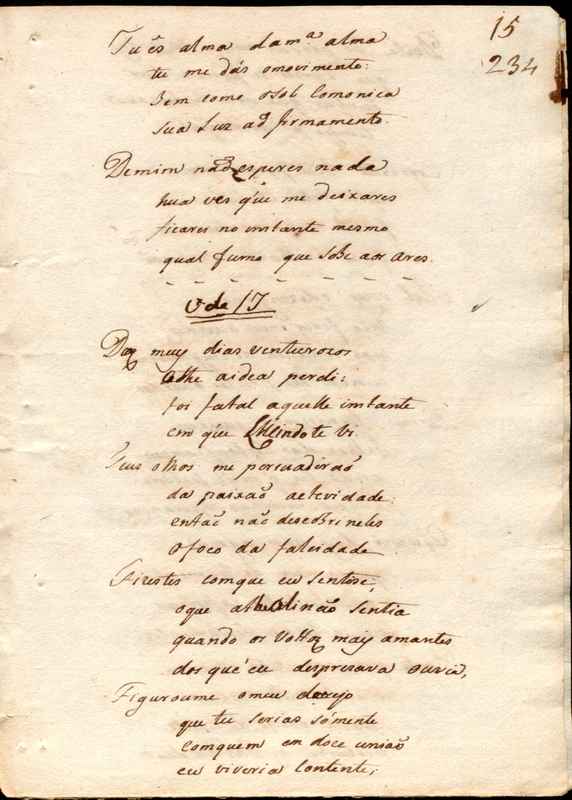 15
234
Tu és alma da mª alma
tu me dás o movimento:
Bem como o sol Comonica
sua Luz ao firmamento.
De mim não esperes nada
hua ves q'ue me deixares
ficarei no instante mesmo
qual fumo que sobe aos Ares.
Ode 17
Dos meus dias venturosos
athe a idea perdi:
foi fatal aquelle instante
em q'ue Lilindo te Vi
Teus olhos me persuadirão
da paixão a
então não descobri neles
o foco da falcidade
Fizestes com que eu sentose,
o que athe ali não sentia
quando os Vottos mais amantes
dos que eu despresava ouvia,
Figurou me o meu dezejo
que tu serias sómente
Com quem en doce união
eu viveria Contente;